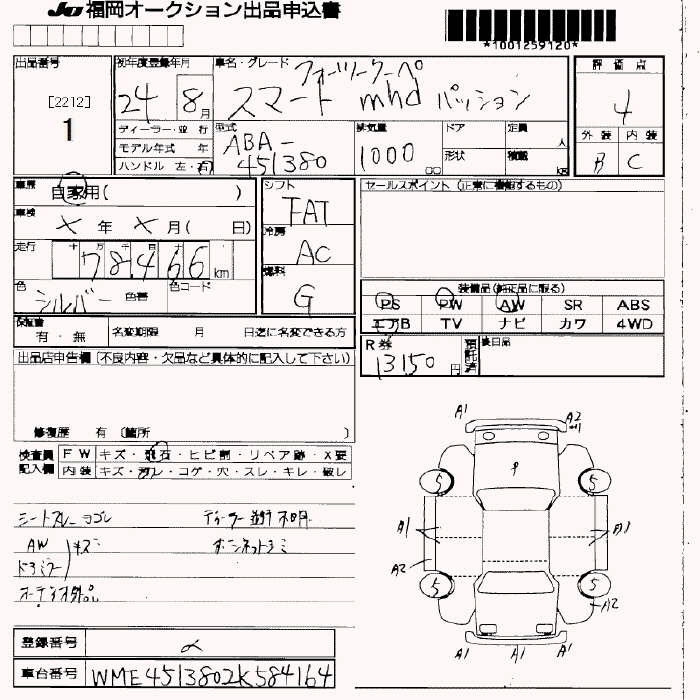 JU 福岡オークション出品申込書
*1001259120*
出品番号
[2212]
1
初年度登録年月
24 8月
車名・グレード
フォーツークーペ
スマート mhd パッション
評価点
4
外装 内装
B C
ディーラー・並行
モデル年式 年
ハンドル 左・右
型式
ABA-
451380
排気量
1000 cc
ドア
形状
定員 人
積載 kg
車歴
自家用( )
車検
X 年 X 月( 日)
走行
十 万 千 百 十
78,466 km
色
シルバー 色番
色コード
シフト
FAT
冷房
AC
燃料
G
セールスポイント (正常に機能するもの)
装備品(純正品に限る)
PS PW AW SR ABS
エアB TV ナビ カワ 4WD
保証書
有・無
名変期限 月 日迄に名変できる方
R券
13150 円
預託済
後日品
出品店申告欄 (不良内容・欠品など具体的に記入して下さい)
修復歴 有 〔箇所 〕
検査員
記入欄
FW キズ・飛石・ヒビ割・リペア跡・X要
内装 キズ・汚レ・コゲ・穴・スレ・キレ・破レ
シートスレ ヨゴレ
ディーラー 並行 不明
AW
ドアミラー
キズ
オーディオ外品
A1 A2
A1
A2
A1
5 5
5 5
A2
A1 A1 A1
登録番号
車台番号
WME4513802K584164